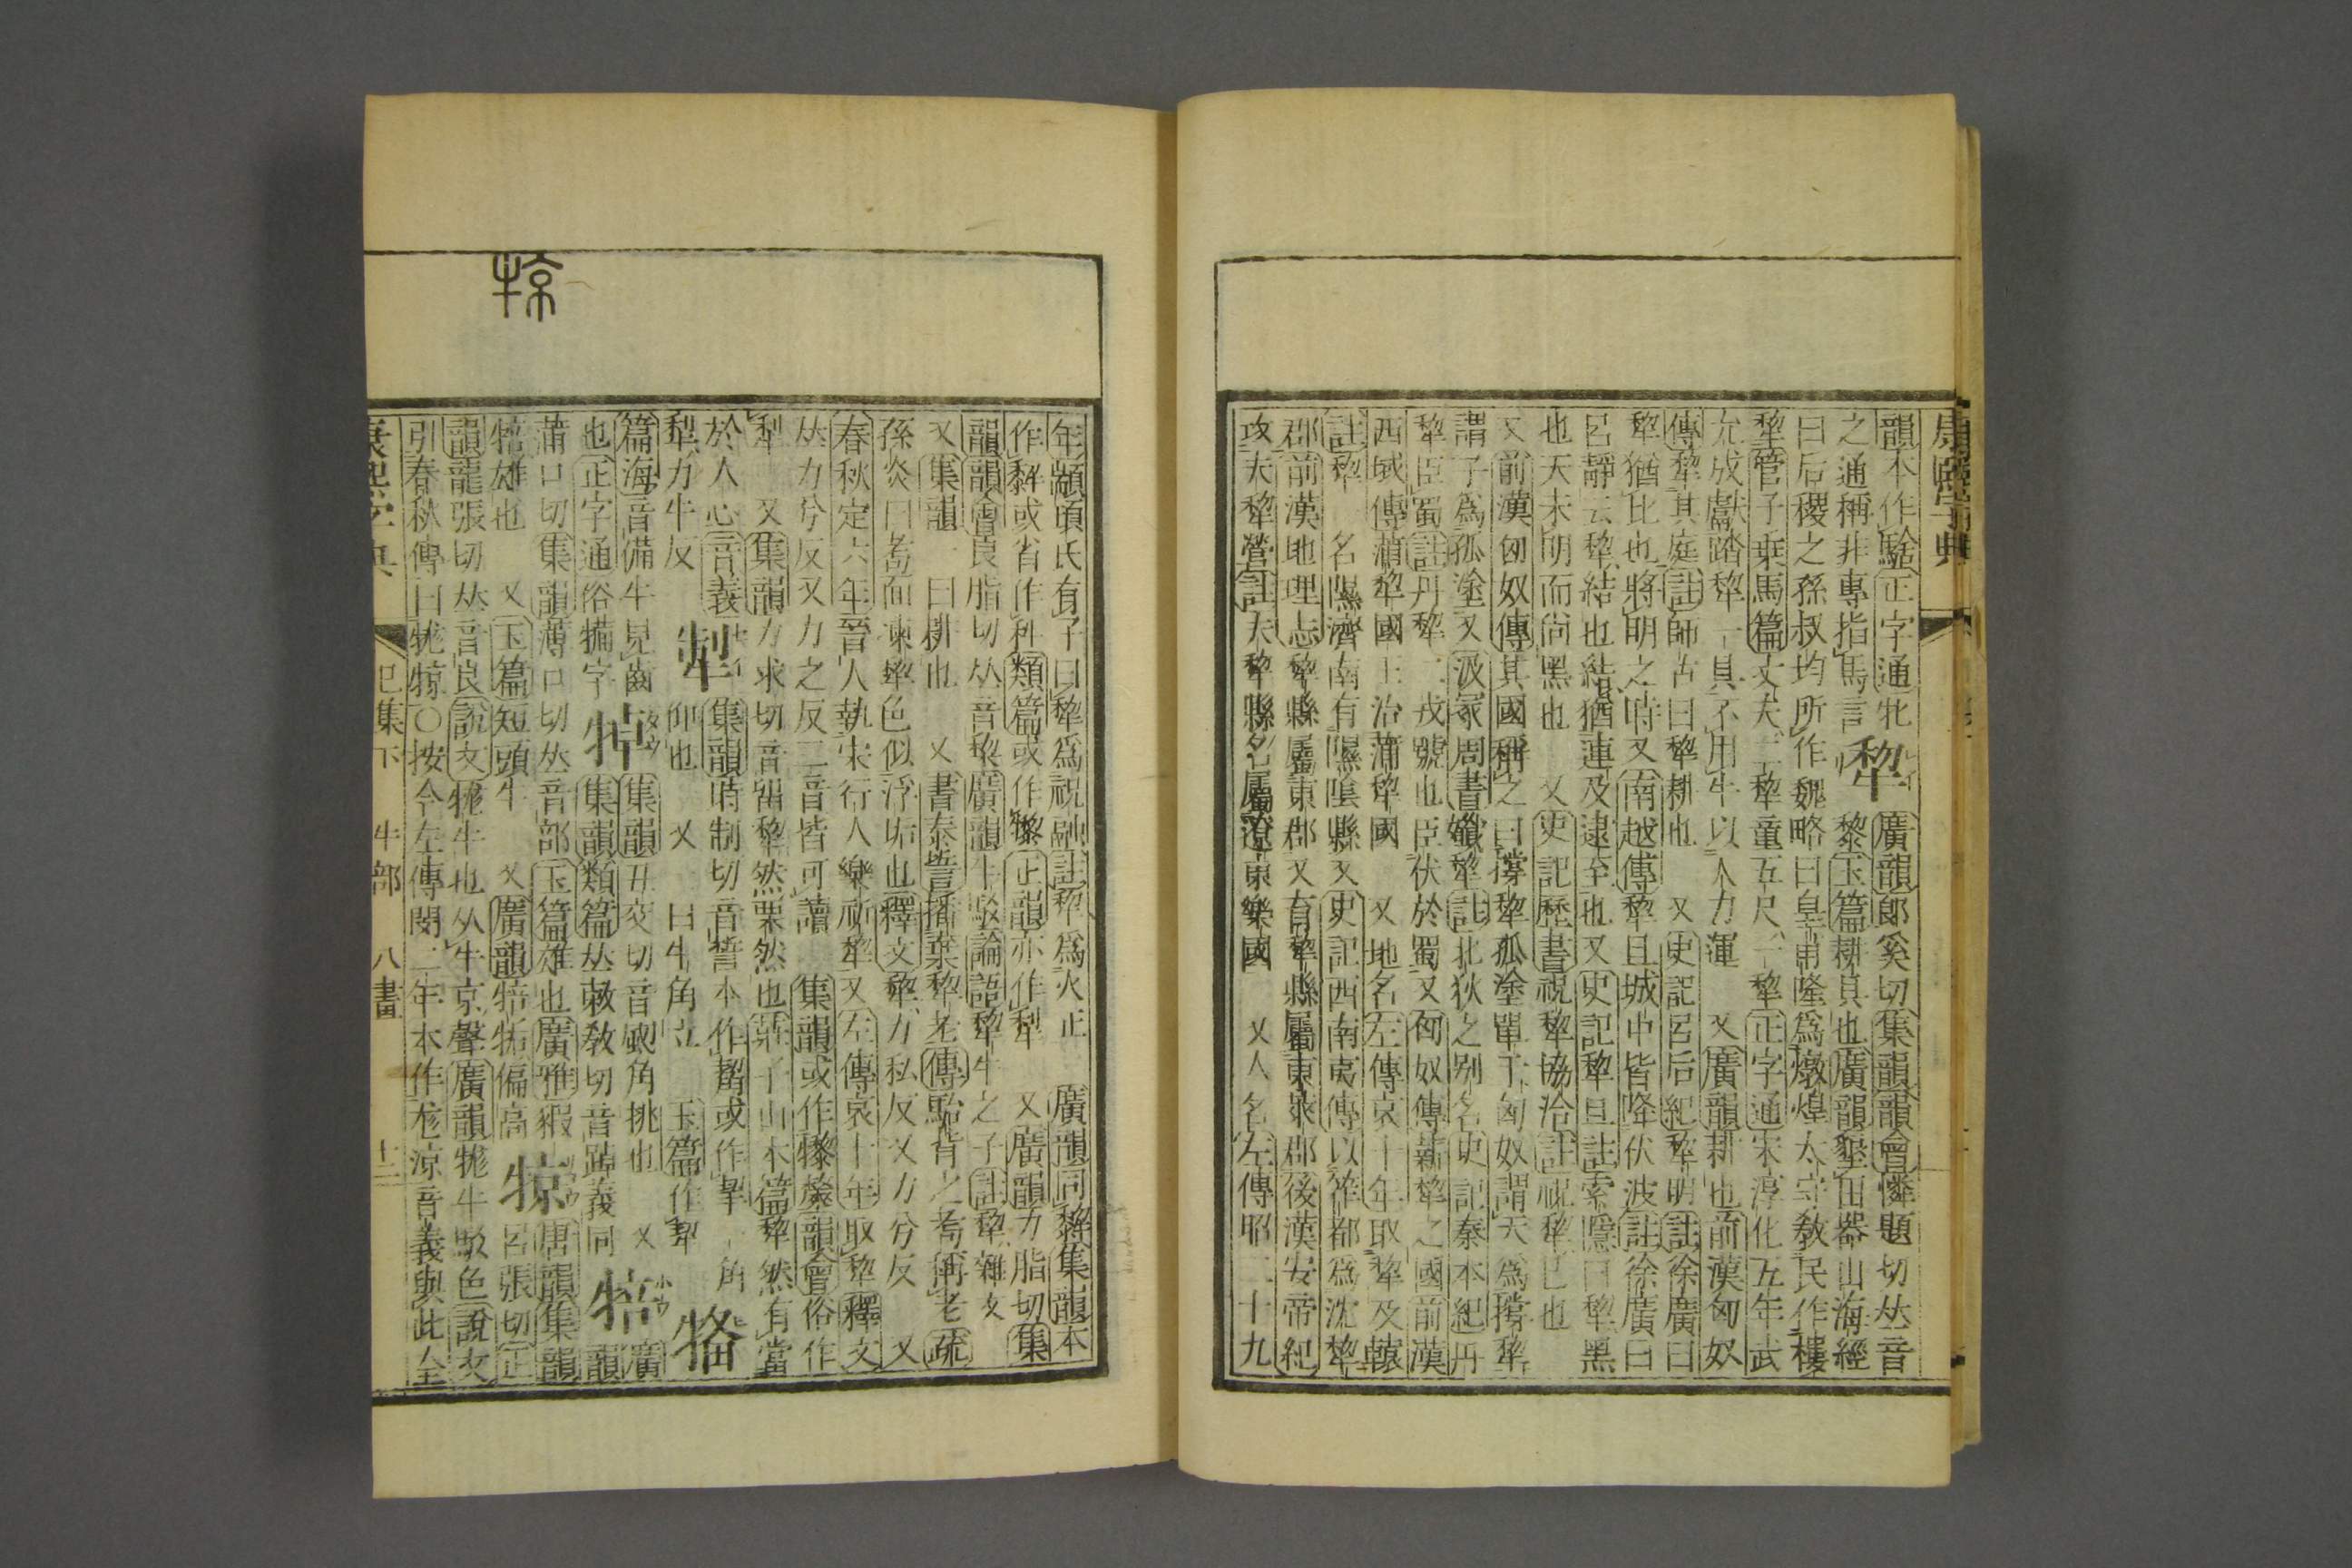 康熙字典
韻本作騇正字通牝
之通稱非專指馬言
犂
廣韻郞奚切集韻韻會憐題切𠀤音
黎玉篇耕具也廣韻墾田器山海經
曰后稷之孫叔均所作魏略曰皇甫隆爲燉煌太守敎民作樓
犂管子乗馬篇丈夫二犂童五尺一犂正字通宋淳化五年武
允成獻踏犂一具不用牛以人力運 又廣韻耕也前漢匈奴
傳犂其庭註師古曰犂耕也 又史記呂后紀犂明註徐廣曰
犂猶比也將明之時又南越傳犂旦城中皆降伏波註徐廣曰
呂靜云犂結也結猶連及逮至也又史記犂旦註索隱曰犂黑
也天未明而尚黑也 又史記歷書祝犂協洽註祝犂己也
又前漢匈奴傳其國稱之曰撐犂孤塗單于匈奴謂天爲撐犂
謂子爲孤塗又汲冢周書孅犂註北狄之别名史記秦本紀丹
犂臣蜀註丹犂二戎號也臣伏於蜀又匈奴傳薪犂之國前漢
西域傳蒲犂國王治蒲犂國 又地名左傳哀十年取犂及轅
註犂一名隰濟南有隰隂縣又史記西南夷傳以筰都爲沈犂
郡前漢地理志犂縣屬東郡又有犂縣屬東萊郡後漢安帝紀
攻夫犂營註夫犂縣名屬遼東樂國 又人名左傳昭二十九
年顓頊氏有子曰犂爲祝融註犂爲火正 廣韻同黎集韻本
韻韻會良脂切𠀤音棃廣韻牛駁論語犂牛之子註犂雜文
又集韻一曰耕也 又書泰誓播棄犂老傳鮐背之耇稱老疏
孫炎曰耇面凍犂色似浮垢也釋文犂力私反又力兮反 又
春秋定六年晉人執宋行人樂祁犂又左傳哀十年取犂釋文
𠀤力兮反又力之反二音皆可讀 集韻或作 韻會俗作
犁 又集韻力求切音留犂然栗然也莊子山木篇犂然有當
於人心音義
犁力牛反
集韻時制切音誓本作觢或作 一角
仰也 又一曰牛角立 玉篇作
篇海音備牛見齒
也正字通俗犕字
集韻丑交切音 角挑也 又廣
集韻類篇𠀤敕敎切音踔義同
犃
韻
蒲口切集韻薄口切𠀤音部玉篇雄也廣雅犌
犃雄也 又玉篇短頭牛 又廣韻犃 偏高
㹁
唐韻集韻
呂張切正
韻龍張切𠀤音良說文牻牛也从牛京聲廣韻牻牛駁色說文
引春秋傳曰牻㹁○按今左傳閔二年本作尨涼音義與此全
康熙字典 巳集下 牛部 八畫 十二
㹁